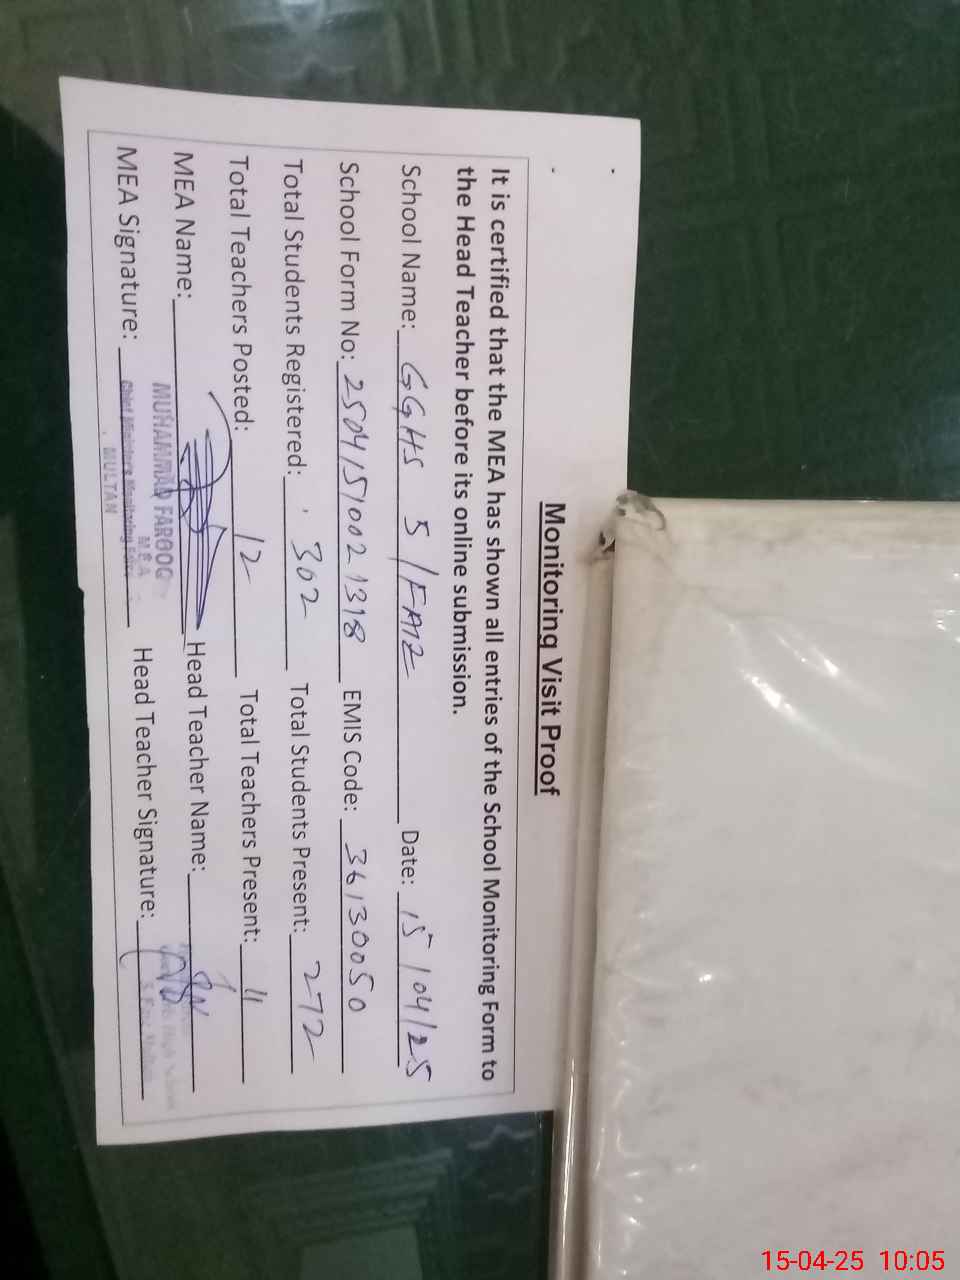 Monitoring Visit Proof
It is certified that the MEA has shown all entries of the School Monitoring Form to
the Head Teacher before its online submission.
School Name: GGHS 5/FAIZ Date: 15/04/25
School Form No: 25041510021318 EMIS Code: 36130050
Total Students Registered: 302 Total Students Present: 272
Total Teachers Posted: 12 Total Teachers Present: 11
MEA Name: Head Teacher Name:
MUHAMMAD FAROOQ
M.E.A
MEA Signature: Head Teacher Signature:
Chief Minister's Monitoring Force
MULTAN
15-04-25 10:05